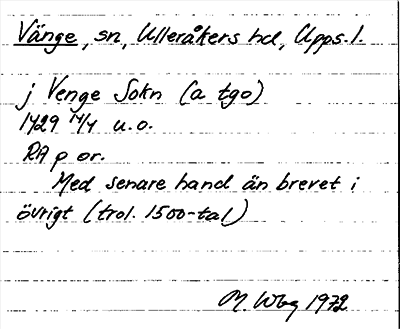 Vänge, sn, Ulleråkers hd, Upps. l.
j Venge Sokn (a tgo)
1429 14/4 u.o.
RA p or.
Med senare hand än brevet i
övrigt (trol. 1500-tal)
M. Wbg 1972